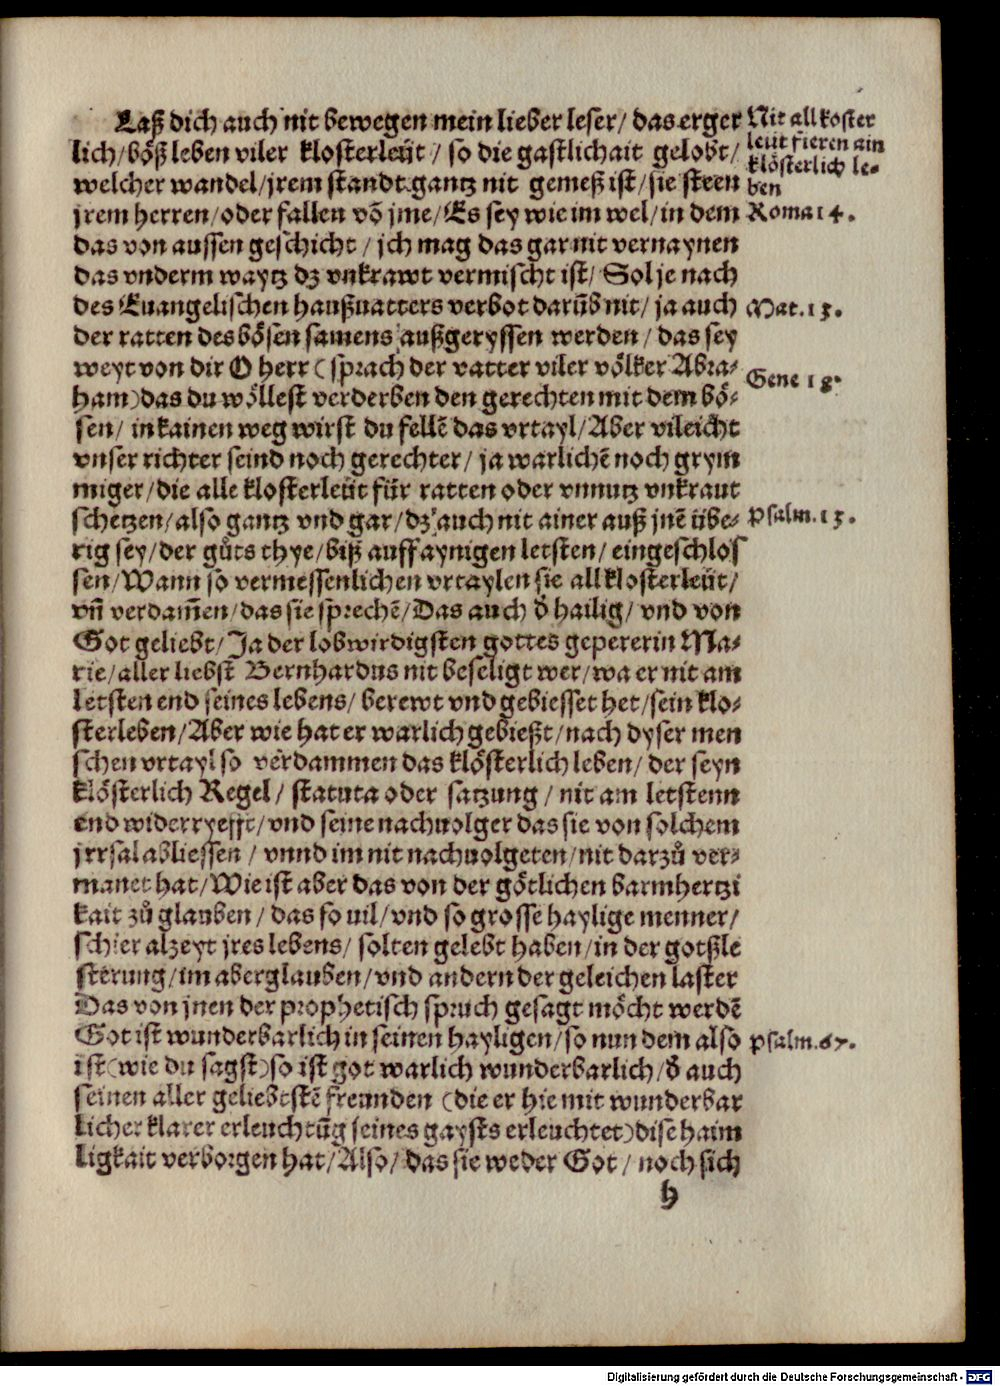 Laß dich auch nit bewegen mein lieber leser/ das erger
lich/ böß leben viler klosterleüt / so die gastlichait gelobt/
welcher wandel/ jrem standt gantz nit gemeß ist/ sie steen
jrem herren/ oder fallen vō jme/ Es sey wie im wel/ in dem
das von aussen geschicht / jch mag das gar nit vernaynen
das vnderm waytz dz vnkrawt vermischt ist/ Sol je nach
des Euangelischen haußuatters verbot darūb nit/ ja auch
der ratten des bösen samens außgeryssen werden / das sey
weyt von dir O herr ( sprach der vatter viler völker Abra-
ham) das du wöllest verderben den gerechten mit dem bö-
sen/ in kainen weg wirst du fellē das vrtayl/ Aber vileicht
vnser richter seind noch gerechter/ ja warlichē noch grym
miger/ die alle klosterleüt für ratten oder vnnutz vnkraut
schetzen/ also gantz vnd gar/ dz auch nit ainer auß jnē übe-
rig sey/ der gůts thye/ biß auff aynigen letsten/ eingeschlos
sen/ Wann so vermessenlichen vrtaylen sie all klosterleüt/
vn̄ verdam̄en/ das sie sprechē/ Das auch d̓ hailig/ vnd von
Got geliebt/ Ja der lobwirdigsten gottes gepererin Ma-
rie/ aller liebst Bernhardus nit beseligt wer/ wa er nit am
letsten end seines lebens/ berewt vnd gebiesset het/ sein klo-
sterleben/ Aber wie hat er warlich gebießt/ nach dyser men
schen vrtayl so verdammen das klösterlich leben/ der seyn
klösterlich Regel/ statuta oder satzung / nit am letstenn
end widerryefft/ vnd seine nachuolger das sie von solchem
jrrsal abliessen / vnnd im nit nachuolgeten/ nit darzů ver-
manet hat/ Wie ist aber das von der götlichen barmhertzi
kait zů glauben / das so uil/ vnd so grosse haylige menner/
schier alzeyt jres lebens/ solten gelebt haben/ in der gotßle
sterung/ im aberglauben/ vnd andern der geleichen laster
Das von jnen der prophetisch spruch gesagt möcht werdē
Got ist wunderbarlich in seinen hayligen/ so nun dem also
ist (wie du sagst) so ist got warlich wunderbarlich/ d̓ auch
seinen aller geliebtstē freunden (die er hie mit wunderbar
licher klarer erleuchtūg seines gaysts erleuchtet) dise haim
ligkait verborgen hat/ Also/ das sie weder Got / noch sich
h
Nit all koster
leut fieren ain
klösterlich le-
ben
Roma 14.
Mat. 13.
Gene 18.
Psalm. 13.
Psalm. 67.
Digitalisierung gefördert durch die Deutsche Forschungsgemeinschaft - DFG